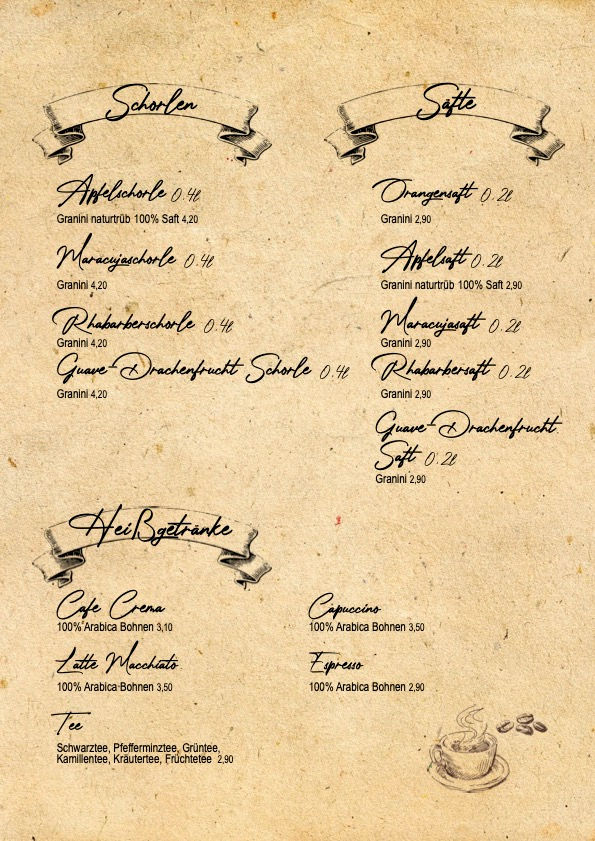 Schorlen
Apfelschorle 0.4l
Granini naturtrüb 100% Saft 4,20
Maracujaschorle 0.4l
Granini 4,20
Rhabarberschorle 0.4l
Granini 4,20
Guave-Drachenfrucht Schorle 0.4l
Granini 4,20
Säfte
Orangensaft 0.2l
Granini 2,90
Apfelsaft 0.2l
Granini naturtrüb 100% Saft 2,90
Maracujasaft 0.2l
Granini 2,90
Rhabarbersaft 0.2l
Granini 2,90
Guave-Drachenfrucht
Saft 0.2l
Granini 2,90
Heißgetränke
Cafe Crema
100% Arabica Bohnen 3,10
Latte Macchiato
100% Arabica Bohnen 3,50
Tee
Schwarztee, Pfefferminztee, Grüntee,
Kamillentee, Kräutertee, Früchtetee 2,90
Capuccino
100% Arabica Bohnen 3,50
Espresso
100% Arabica Bohnen 2,90